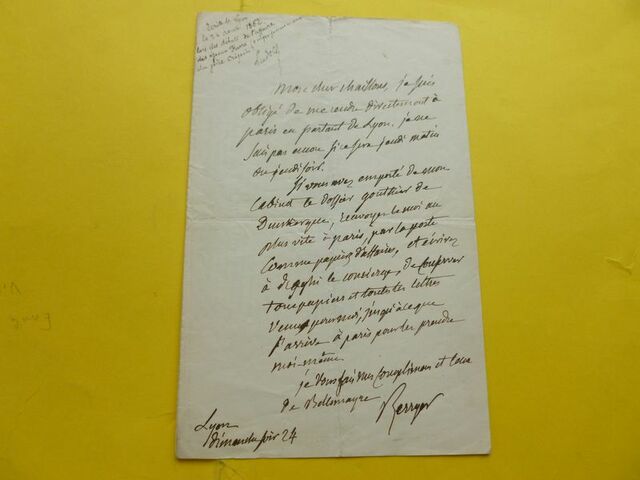 Ecrite de Lyon
le 24 août 1862
lors des débats de l'affaire
du père Crépin
lundi
Mon cher Chaillous, je suis
obligé de me rendre directement à
paris en partant de Lyon. je ne
sais pas encore si ce sera jeudi matin
ou jeudi soir.
Si vous avez emporté de mon
Cabinet le dossier gouttier de
Dunkerque, renvoyez le moi au
plus vite à paris, par la poste
comme papiers d'affaires, et écrivez
à le concierge, de conserver
tous papiers et toutes les lettres
venus pour moi, jusqu'à ce que
j'arrive à paris pour les prendre
moi-même.
je vous fais mes compliments et ceux
de Bellomayre
Berryer
Lyon
dimanche soir 24